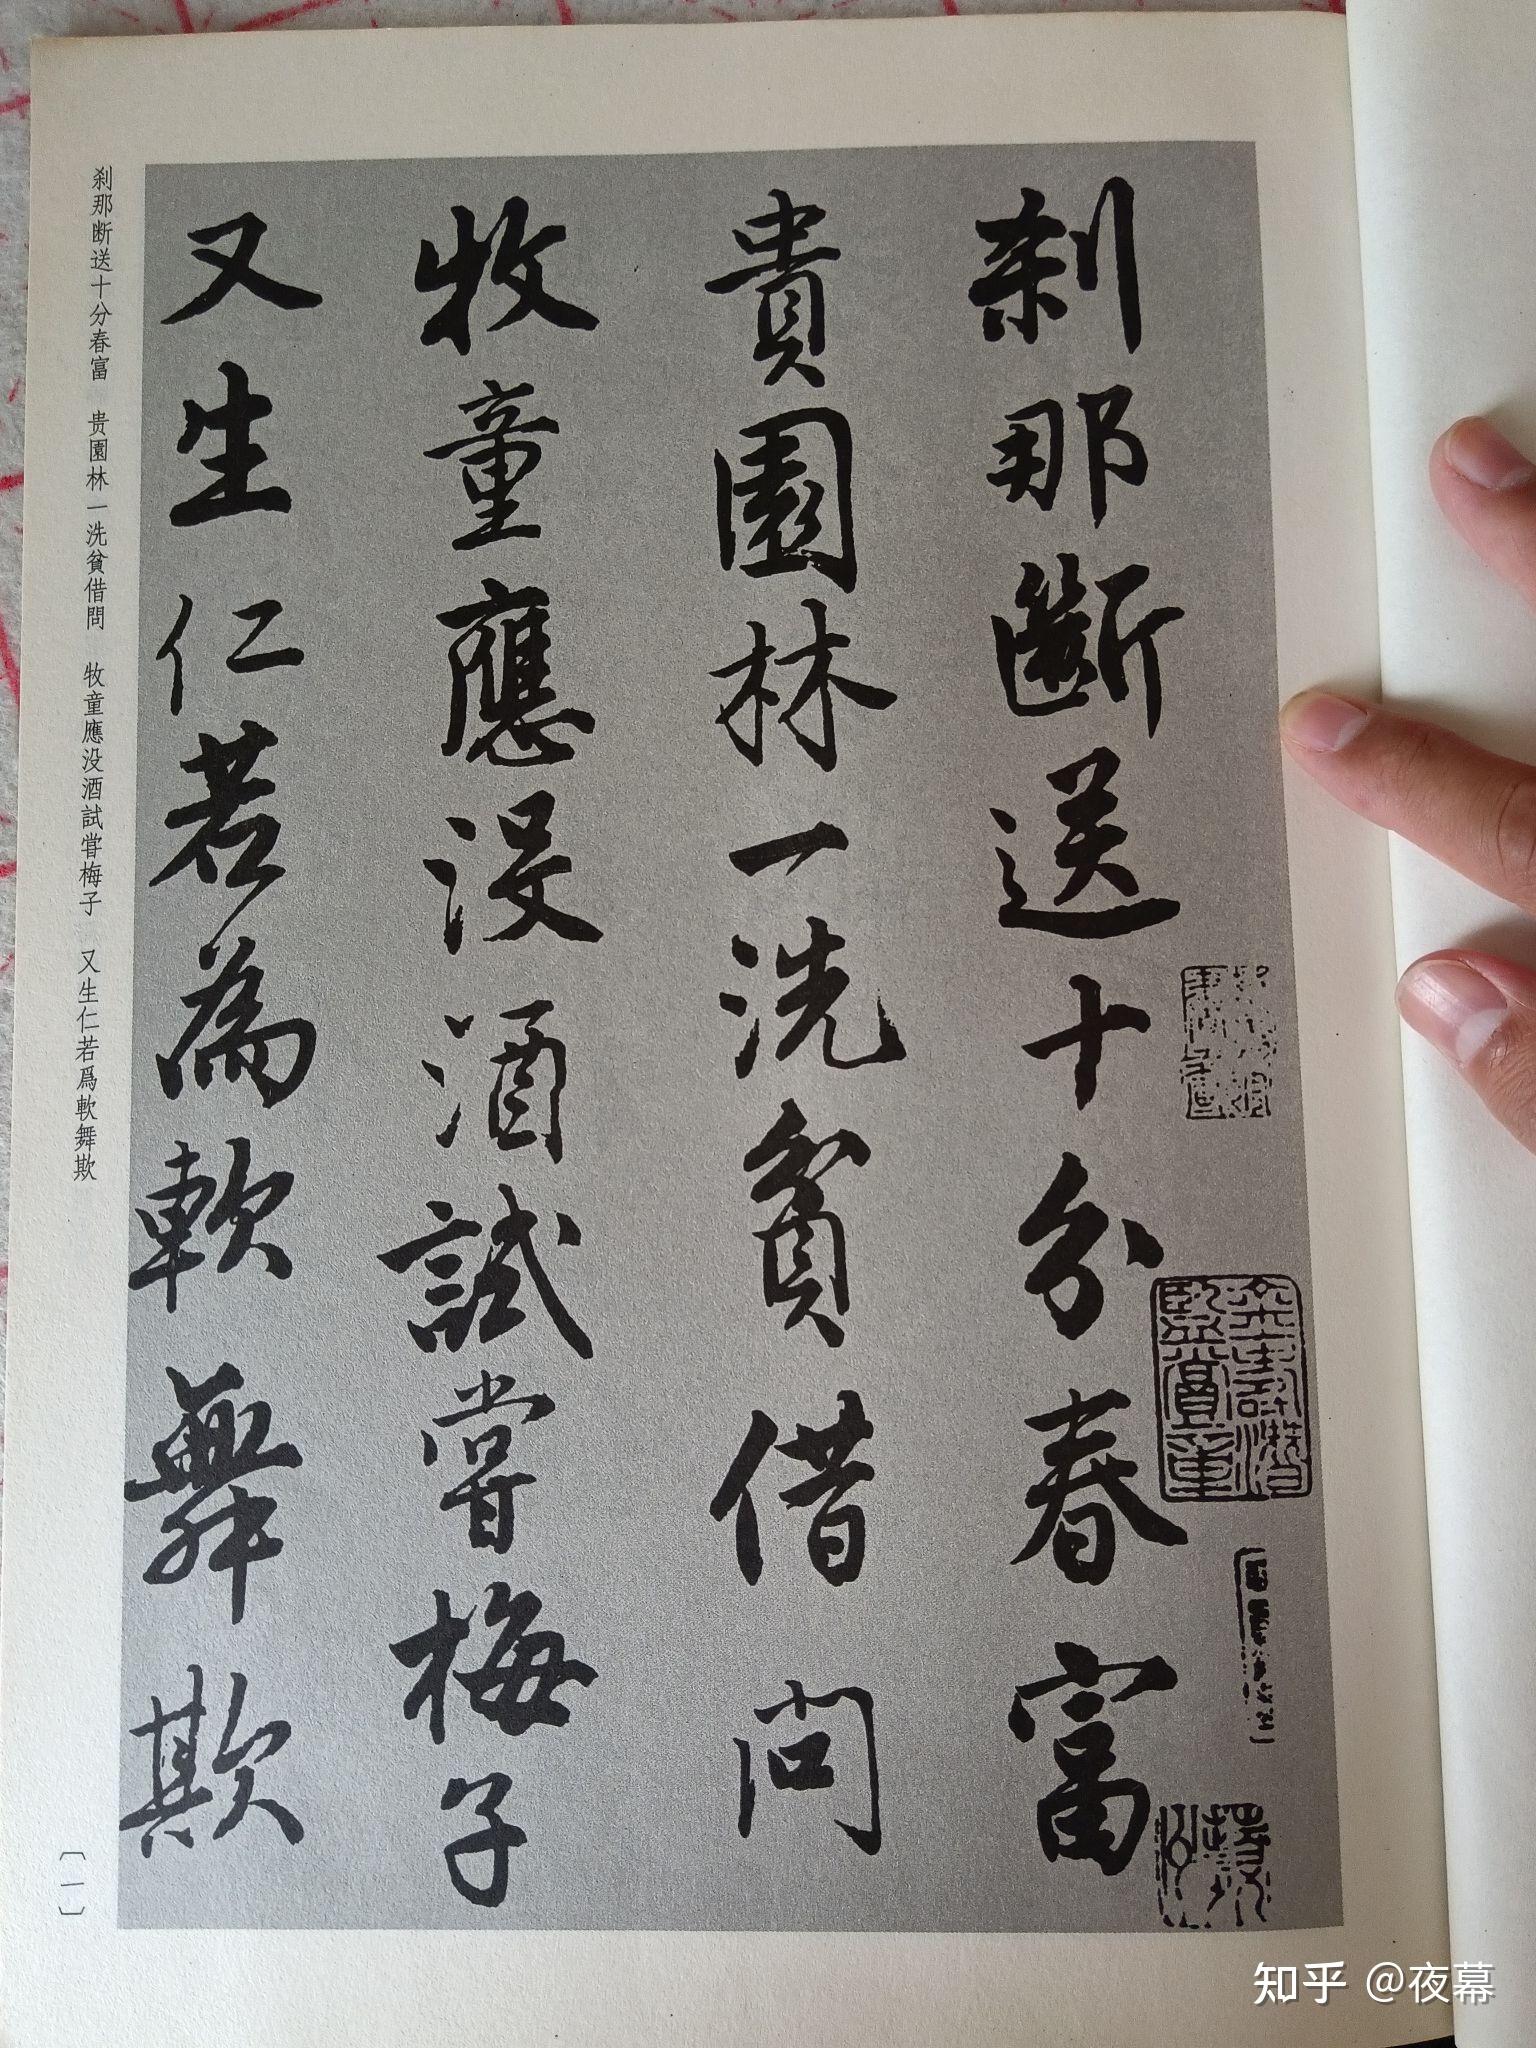 刹那斷送十分春富
貴園林一洗貧借問
牧童應没酒試嘗梅子
又生仁若為軟舞欺
刹那断送十分春富　贵園林一洗貧借問　牧童應没酒試甞梅子　又生仁若爲軟舞欺
〔一〕
知乎 @夜幕